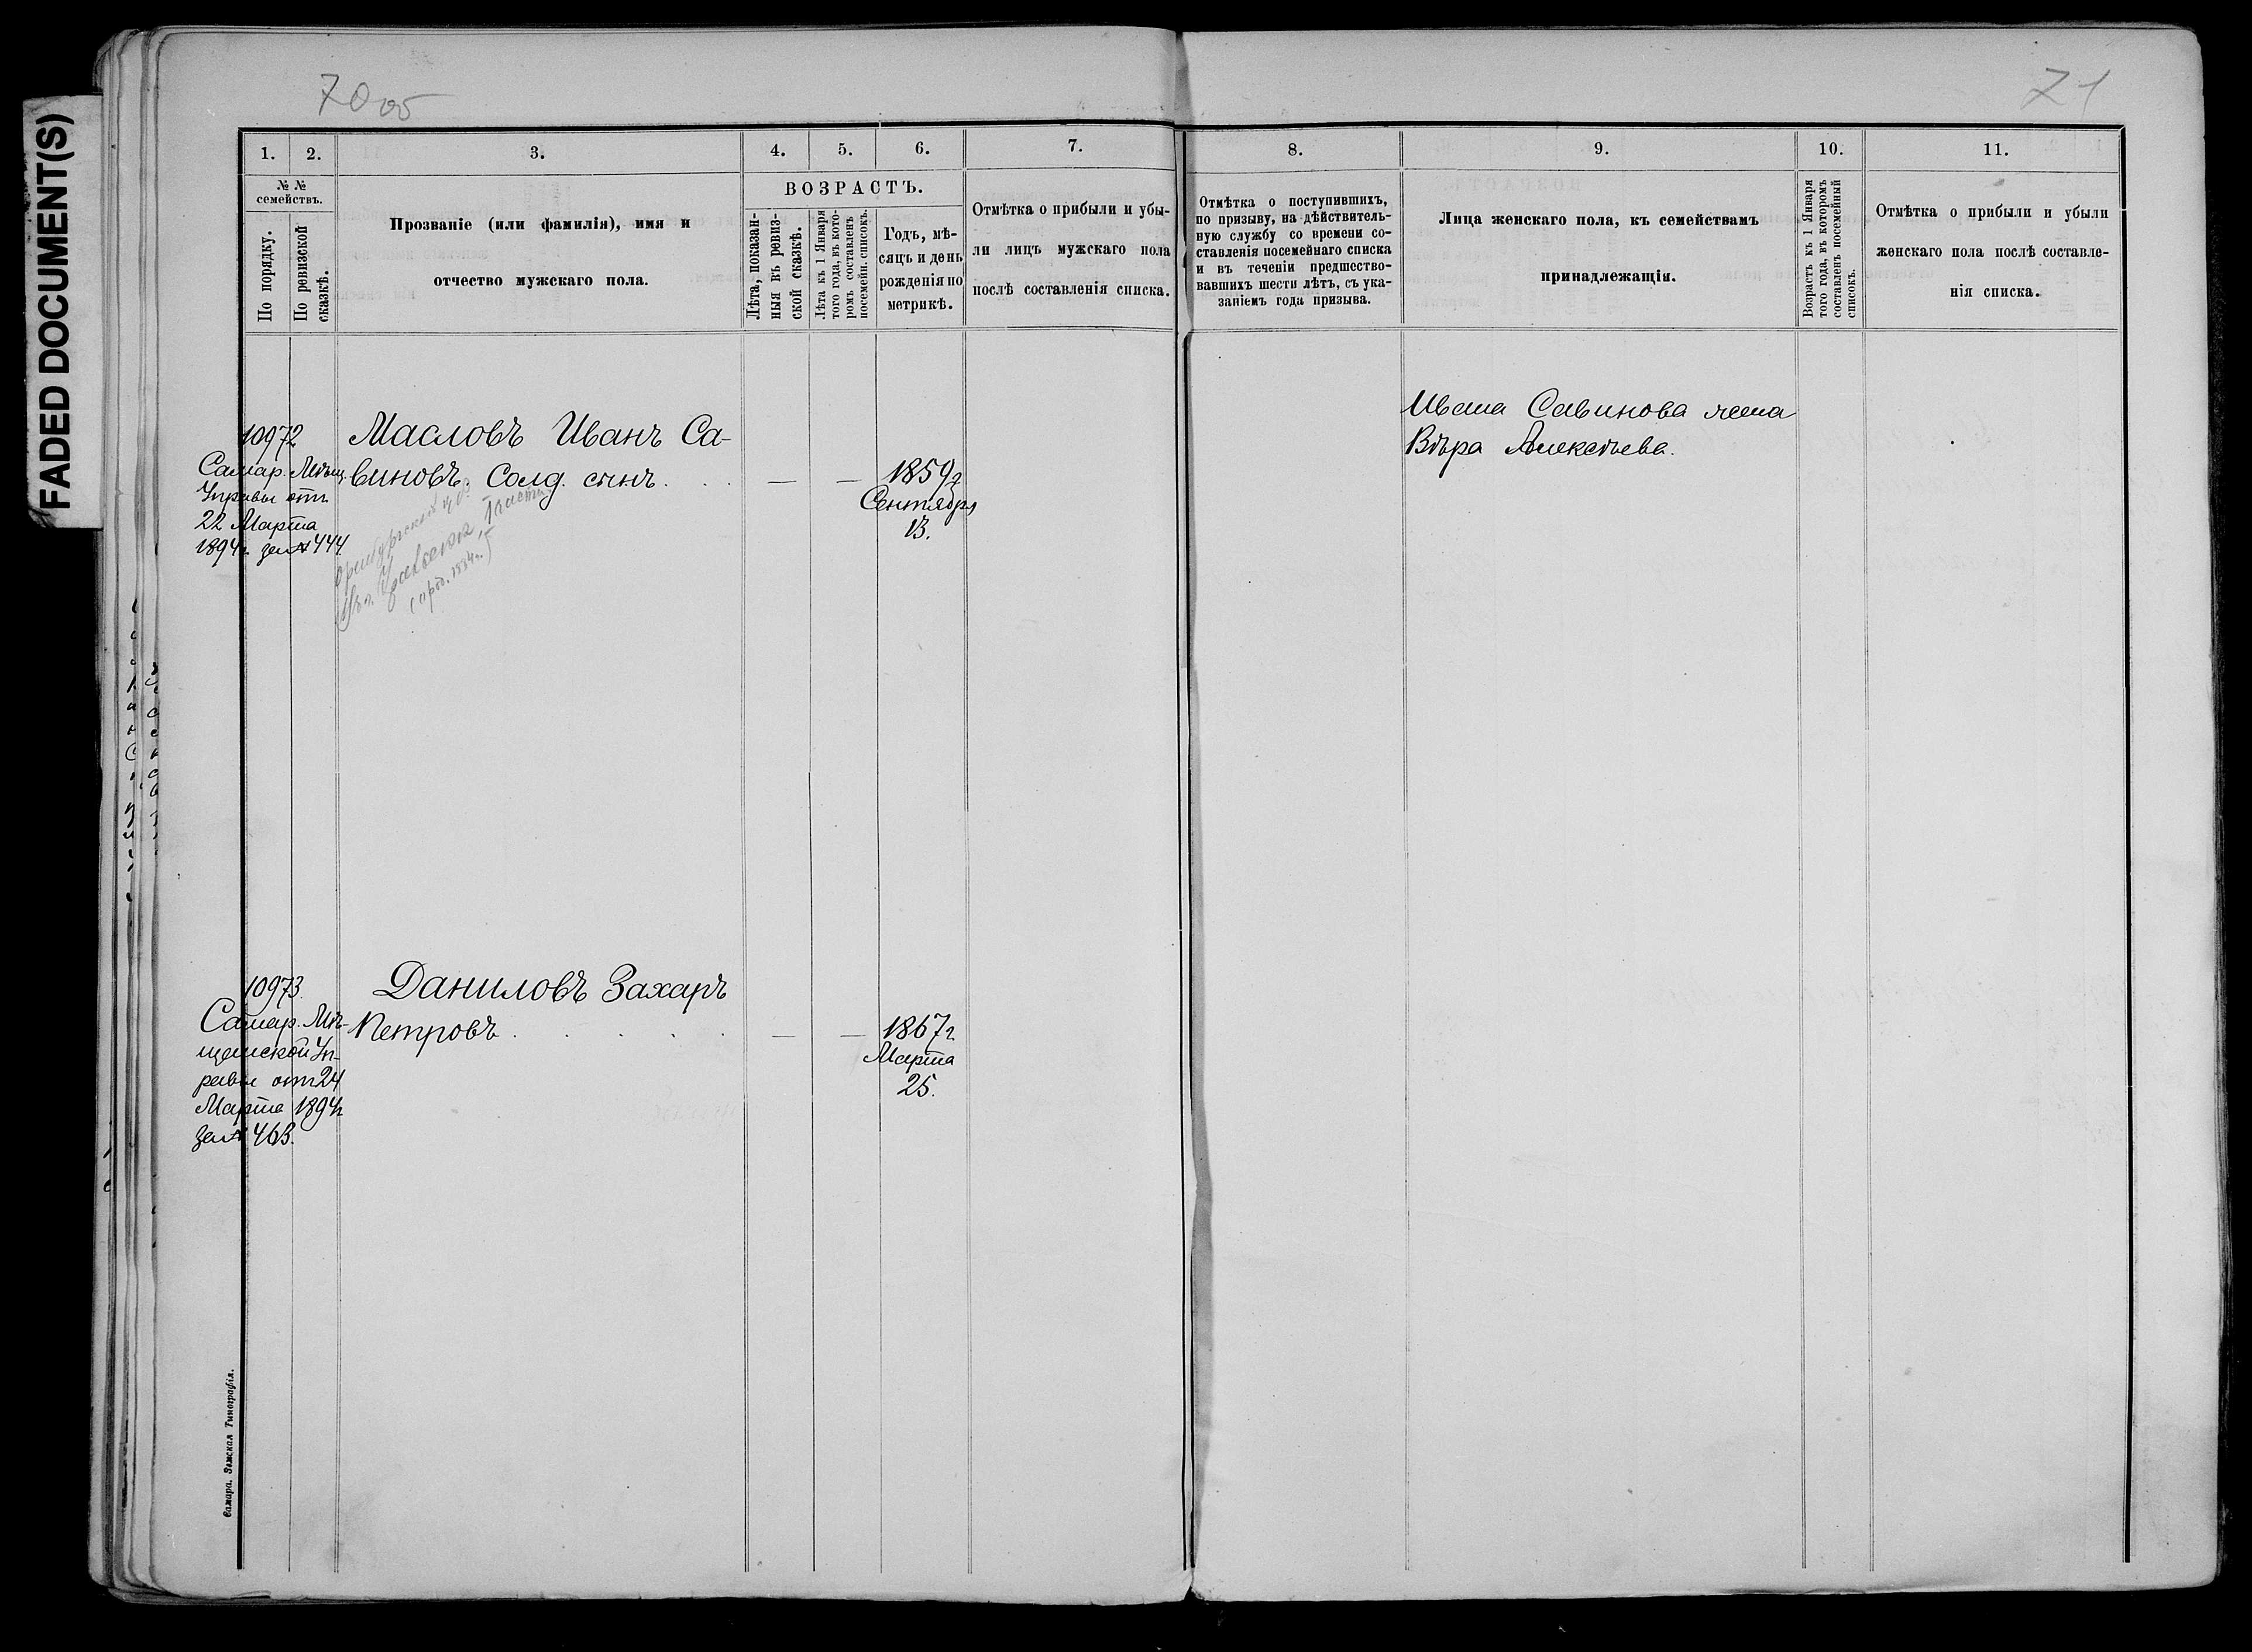 FADED DOCUMENT(S)
70 об
71
1.
2.
3.
4.
5.
6.
7.
8.
9.
10.
11.
№ №
семействъ.
По порядку.
По ревизской
сказкѣ.
Прозваніе (или фамилія), имя и
отчество мужскаго пола.
ВОЗРАСТЪ.
Лѣта, показан-
ныя въ ревиз-
ской сказкѣ.
Лѣта къ 1 Января
того года, въ кото-
ромъ составленъ
посемейн. списокъ.
Годъ, мѣ-
сяцъ и день
рожденія по
метрикѣ.
Отмѣтка о прибыли и убы-
ли лицъ мужскаго пола
послѣ составленія списка.
Отмѣтка о поступившихъ,
по призыву, на дѣйствитель-
ную службу со времени со-
ставленія посемейнаго списка
и въ теченіи предшество-
вавшихъ шести лѣтъ, съ ука-
заніемъ года призыва.
Лица женскаго пола, къ семействамъ
принадлежащія.
Возрастъ къ 1 Января
того года, въ которомъ
составленъ посемейный
списокъ.
Отмѣтка о прибыли и убыли
женскаго пола послѣ составле-
нія списка.
10972
Самар. Мѣщ.
Управы отъ
22 Марта
1894г. за № 444
Масловъ Иванъ Са-
виновъ. Солд. сынъ. . . — —
1859г
Сентября
13.
Ивана Савинова жена
Вѣра Алексѣева.
10973.
Самар. Мѣ-
щанской Уп-
равы отъ 24
Марта 1894г
за № 463.
Даниловъ Захаръ
Петровъ . . . . . — —
1867г.
Марта
25.
Самара. Земская Типографія.